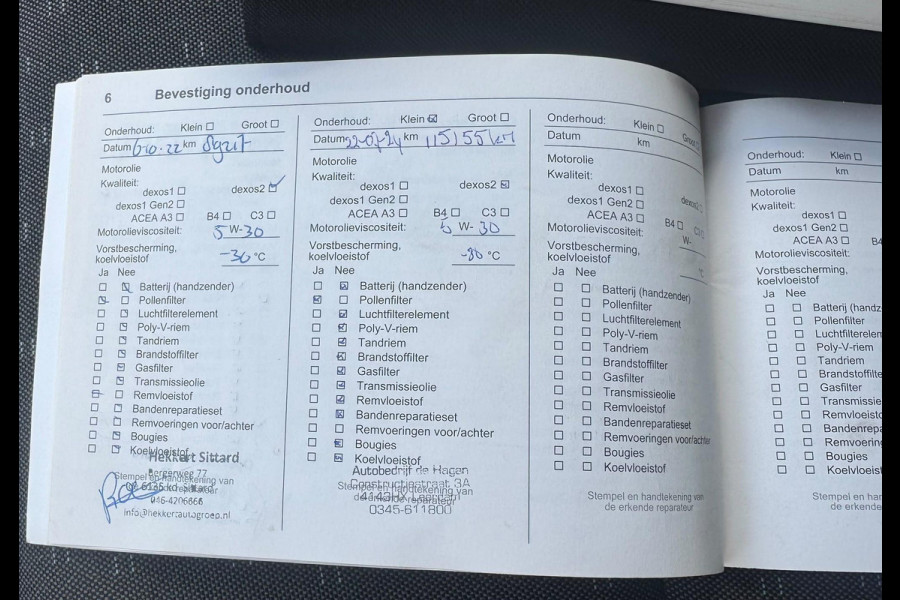 6 Bevestiging onderhoud
Onderhoud: Klein ☐ Groot ☐
Datum km
Motorolie
Kwaliteit:
dexos1 ☐ dexos2 ☑
dexos1 Gen2 ☐
ACEA A3 ☐ B4 ☐ C3 ☐
Motorolieviscositeit: 5 W- 30
Vorstbescherming,
koelvloeistof -36 °C
Ja Nee
Batterij (handzender)
Pollenfilter
Luchtfilterelement
Poly-V-riem
Tandriem
Brandstoffilter
Gasfilter
Transmissieolie
Remvloeistof
Bandenreparatieset
Remvoeringen voor/achter
Bougies
Koelvloeistof
Hekkert Sittard
Bergerweg 77
Stempel en handtekening van
de erkende reparateur
046-4206666
info@hekkertautogroep.nl
Onderhoud: Klein ☑ Groot ☐
Datum 22-07-24 km 115155 km
Motorolie
Kwaliteit:
dexos1 ☐ dexos2 ☑
dexos1 Gen2 ☐
ACEA A3 ☐ B4 ☐ C3 ☐
Motorolieviscositeit: 5 W- 30
Vorstbescherming,
koelvloeistof °C
Ja Nee
Batterij (handzender)
Pollenfilter
Luchtfilterelement
Poly-V-riem
Tandriem
Brandstoffilter
Gasfilter
Transmissieolie
Remvloeistof
Bandenreparatieset
Remvoeringen voor/achter
Bougies
Koelvloeistof
Autobedrijf de Hagen
Constructiestraat 3A
Stempel en handtekening van
de erkende reparateur
0345-611800
Onderhoud: Klein ☐ Groot
Datum km
Motorolie
Kwaliteit:
dexos1 ☐ dexos2
dexos1 Gen2 ☐
ACEA A3 ☐ B4 ☐ C3
Motorolieviscositeit: W-
Vorstbescherming,
koelvloeistof °C
Ja Nee
Batterij (handzender)
Pollenfilter
Luchtfilterelement
Poly-V-riem
Tandriem
Brandstoffilter
Gasfilter
Transmissieolie
Remvloeistof
Bandenreparatieset
Remvoeringen voor/achter
Bougies
Koelvloeistof
Stempel en handtekening van
de erkende reparateur
Onderhoud: Klein ☐
Datum km
Motorolie
Kwaliteit:
dexos1 ☐
dexos1 Gen2 ☐
ACEA A3 ☐ B4
Motorolieviscositeit:
Vorstbescherming,
koelvloeistof
Ja Nee
Batterij (handz
Pollenfilter
Luchtfilterelem
Poly-V-riem
Tandriem
Brandstoffilte
Gasfilter
Transmissie
Remvloeisto
Bandenrepa
Remvoering
Bougies
Koelvloeist
Stempel en har
de erkende